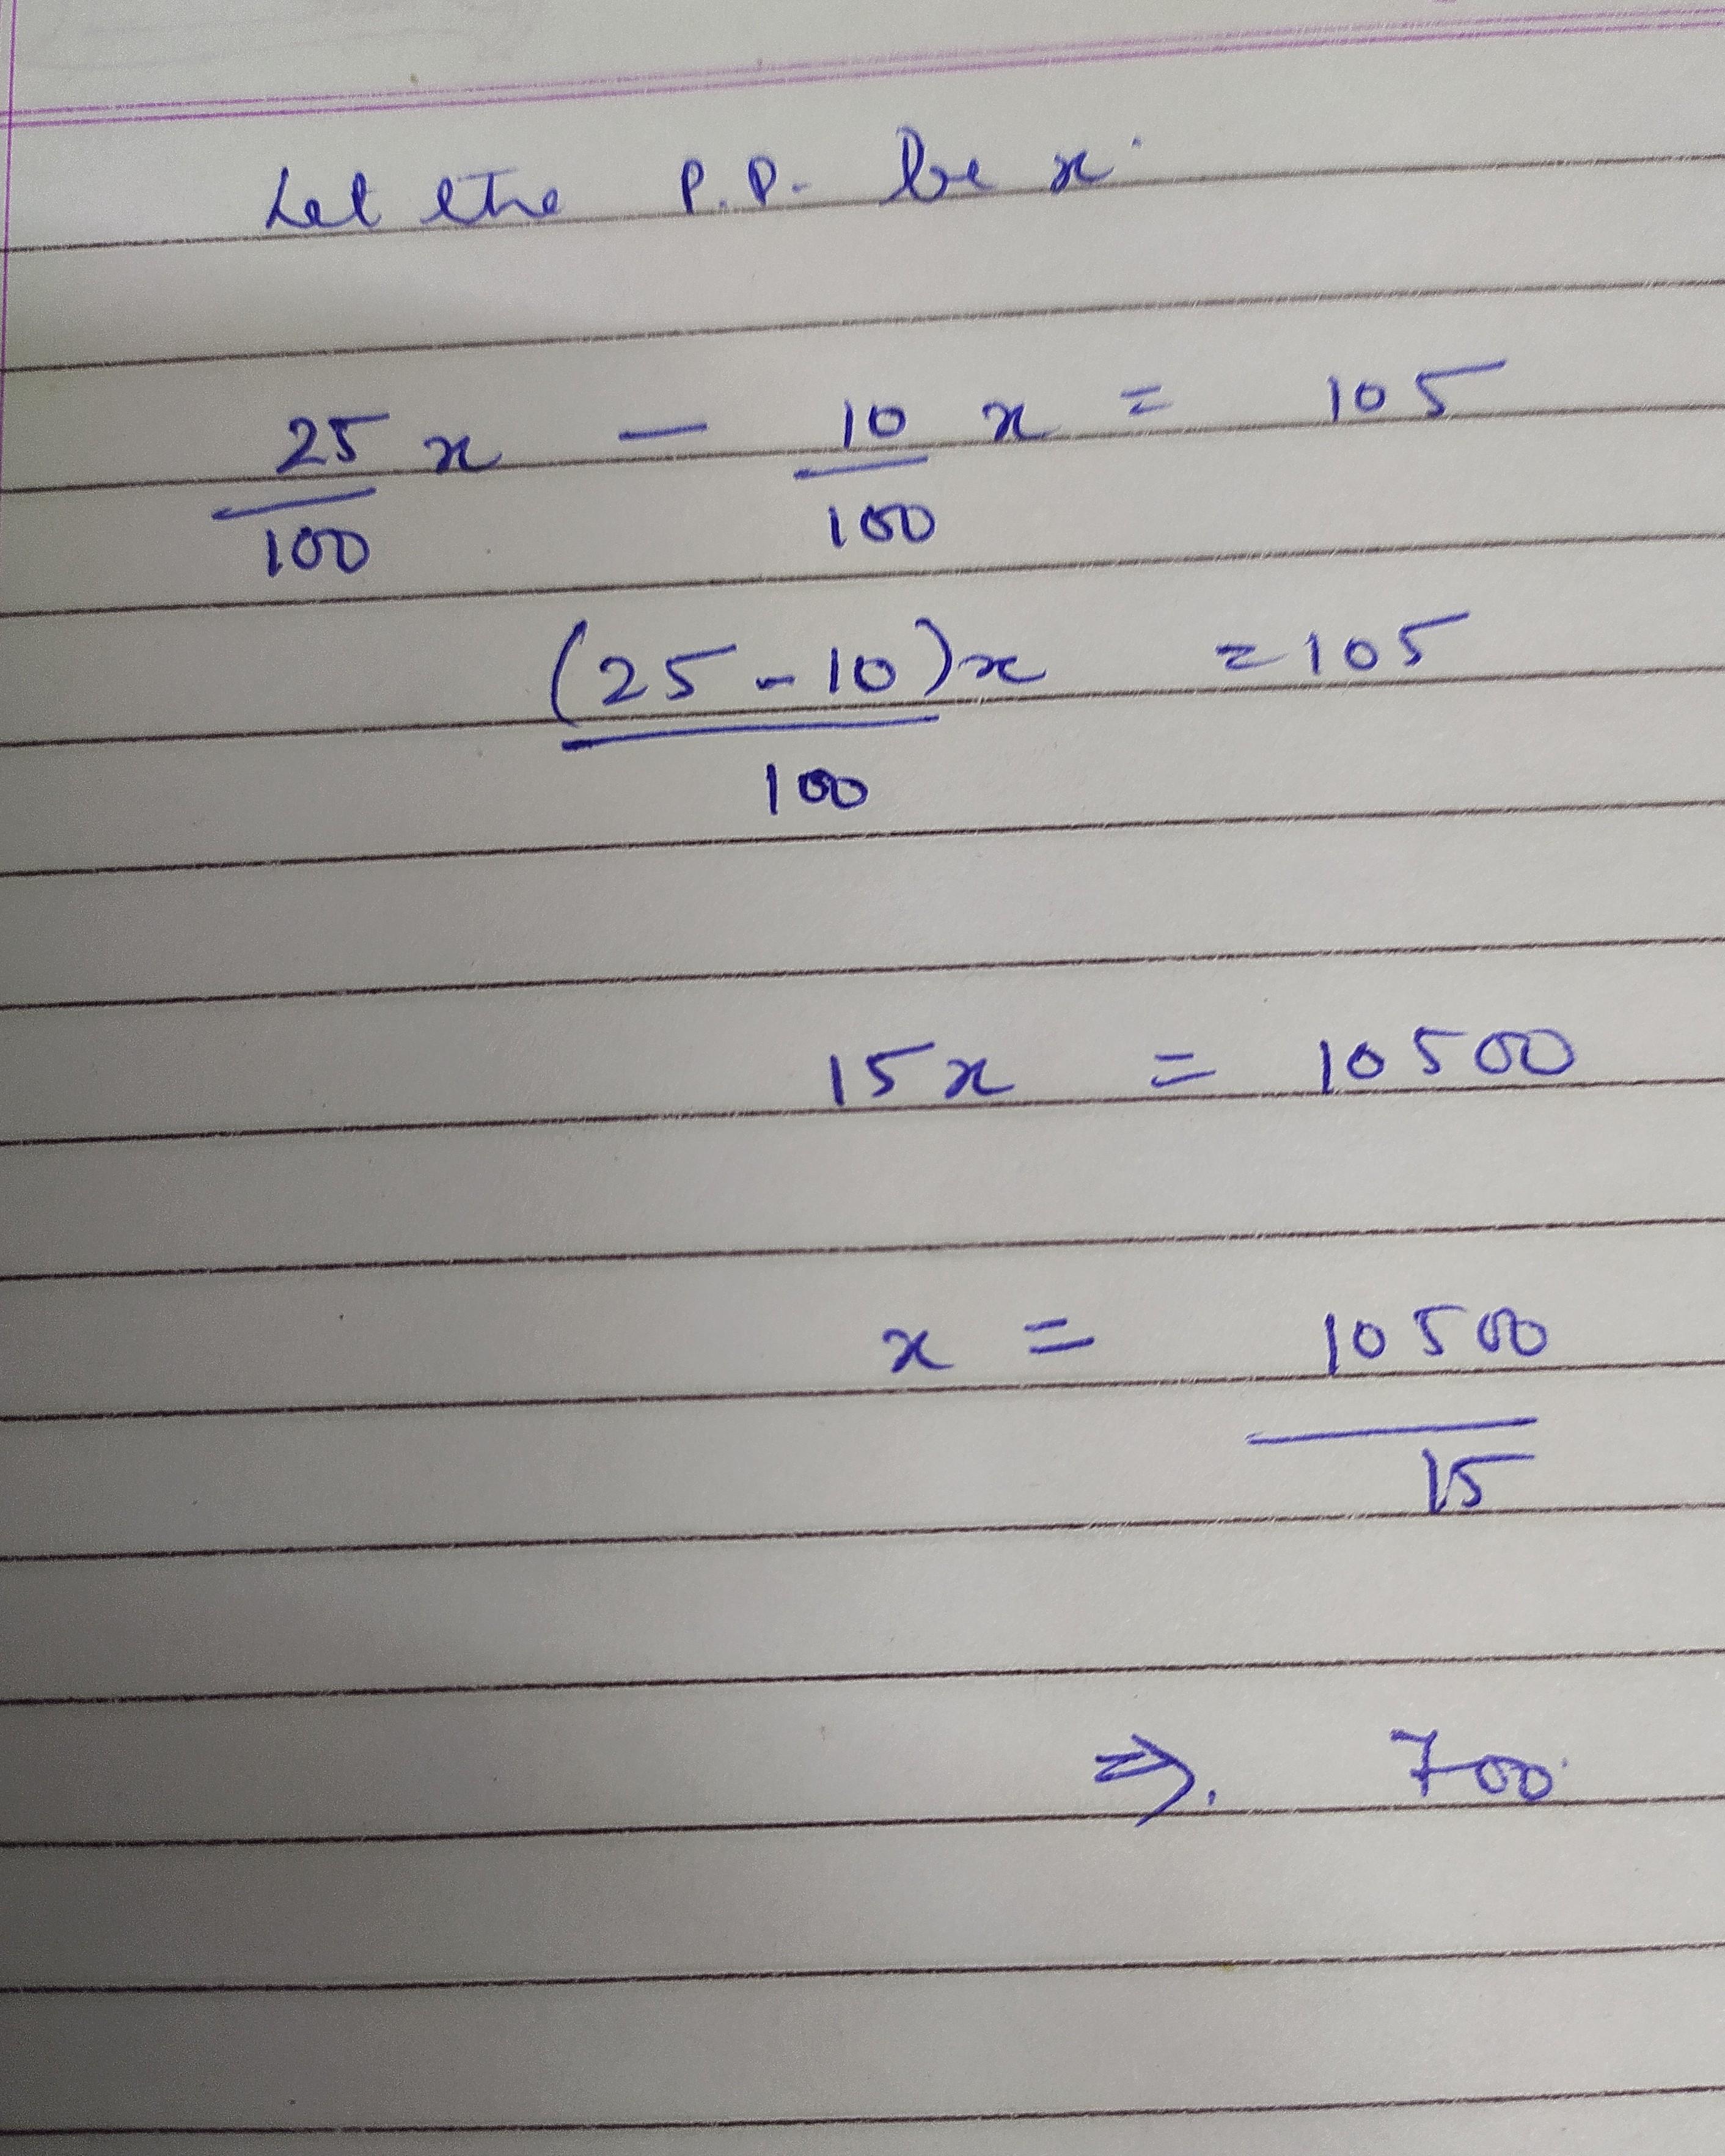 Let the P.P. be x.
25/100 x - 10/100 x = 105
(25-10)x/100 = 105
15x = 10500
x = 10500/15
⇒. 700